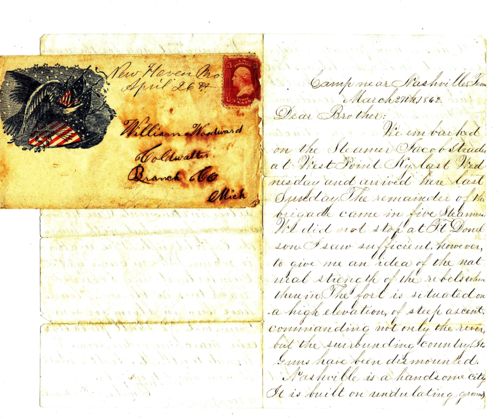 New Haven Mo
April 26th
William Woodward
Coldwater
Branch Co
Mich
Camp near Nashville Tenn
March 27th 1862
Dear Brother:
We imbarked
on the Steamer Jacob
at West Point Ky last Wed
nesday and arrived here last
Sunday The remainder of the
brigade came in five Steamers
We did not stop at Ft Donel
son I saw sufficient however,
to give me an idea of the nat
ural strength of the rebels when
there in. The fort is situated on
a high elevation, of steep ascent
commanding not only the river
but the surrounding country. Its
Guns have been dismounted.
Nashville is a handsome city
It is built on undulating ground